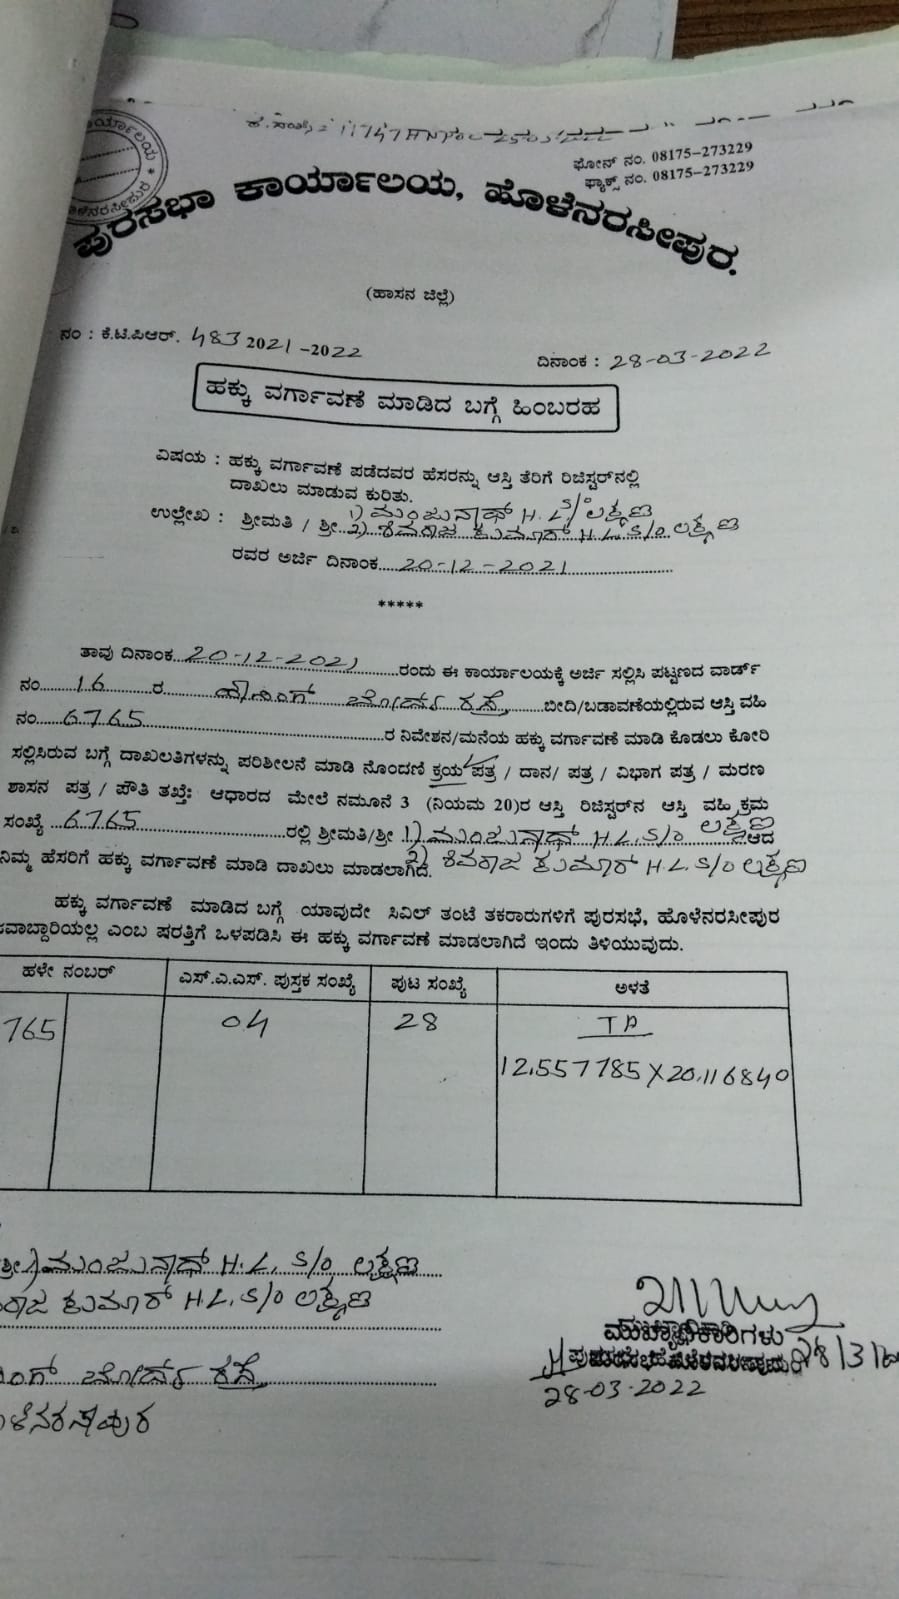 ಫೋನ್ ನಂ. 08175-273229
ಫ್ಯಾಕ್ಸ್ ನಂ. 08175-273229
ಪುರಸಭಾ ಕಾರ್ಯಾಲಯ, ಹೊಳೆನರಸೀಪುರ.
(ಹಾಸನ ಜಿಲ್ಲೆ)
ನಂ : ಕೆ.ಟಿ.ಪಿಆರ್. 483 2021-2022
ದಿನಾಂಕ : 28-03-2022
ಹಕ್ಕು ವರ್ಗಾವಣೆ ಮಾಡಿದ ಬಗ್ಗೆ ಹಿಂಬರಹ
ವಿಷಯ : ಹಕ್ಕು ವರ್ಗಾವಣೆ ಪಡೆದವರ ಹೆಸರನ್ನು ಆಸ್ತಿ ತೆರಿಗೆ ರಿಜಿಸ್ಟರ್‌ನಲ್ಲಿ
ದಾಖಲು ಮಾಡುವ ಕುರಿತು.
1) ಮಂಜುನಾಥ್ H.L S/o ಲಕ್ಷ್ಮಣ
ಉಲ್ಲೇಖ : ಶ್ರೀಮತಿ / ಶ್ರೀ 2) ಶಿವರಾಜ ಕುಮಾರ್ H.L. S/o ಲಕ್ಷ್ಮಣ
ರವರ ಅರ್ಜಿ ದಿನಾಂಕ 20-12-2021
*****
ತಾವು ದಿನಾಂಕ 20-12-2021 ರಂದು ಈ ಕಾರ್ಯಾಲಯಕ್ಕೆ ಅರ್ಜಿ ಸಲ್ಲಿಸಿ ಪಟ್ಟಣದ ವಾರ್ಡ್
ನಂ 16 ರ ಹೌಸಿಂಗ್ ಬೋರ್ಡ್ ರಸ್ತೆ ಬೀದಿ/ಬಡಾವಣೆಯಲ್ಲಿರುವ ಆಸ್ತಿ ವಹಿ
ನಂ 6765 ರ ನಿವೇಶನ/ಮನೆಯ ಹಕ್ಕು ವರ್ಗಾವಣೆ ಮಾಡಿ ಕೊಡಲು ಕೋರಿ
ಸಲ್ಲಿಸಿರುವ ಬಗ್ಗೆ ದಾಖಲತಿಗಳನ್ನು ಪರಿಶೀಲನೆ ಮಾಡಿ ನೊಂದಣಿ ಕ್ರಯ ಪತ್ರ / ದಾನ/ ಪತ್ರ / ವಿಭಾಗ ಪತ್ರ / ಮರಣ
ಶಾಸನ ಪತ್ರ / ಪೌತಿ ತಖ್ತೆ: ಆಧಾರದ ಮೇಲೆ ನಮೂನೆ 3 (ನಿಯಮ 20)ರ ಆಸ್ತಿ ರಿಜಿಸ್ಟರ್‌ನ ಆಸ್ತಿ ವಹಿ ಕ್ರಮ
ಸಂಖ್ಯೆ 6765 ರಲ್ಲಿ ಶ್ರೀಮತಿ/ಶ್ರೀ 1) ಮಂಜುನಾಥ್ H.L. S/o ಲಕ್ಷ್ಮಣ ಆದ
ನಿಮ್ಮ ಹೆಸರಿಗೆ ಹಕ್ಕು ವರ್ಗಾವಣೆ ಮಾಡಿ ದಾಖಲು ಮಾಡಲಾಗಿದೆ. 2) ಶಿವರಾಜ ಕುಮಾರ್ H.L. S/o ಲಕ್ಷ್ಮಣ
ಹಕ್ಕು ವರ್ಗಾವಣೆ ಮಾಡಿದ ಬಗ್ಗೆ ಯಾವುದೇ ಸಿವಿಲ್ ತಂಟೆ ತಕರಾರುಗಳಿಗೆ ಪುರಸಭೆ, ಹೊಳೆನರಸೀಪುರ
ವಾಬ್ದಾರಿಯಲ್ಲ ಎಂಬ ಷರತ್ತಿಗೆ ಒಳಪಡಿಸಿ ಈ ಹಕ್ಕು ವರ್ಗಾವಣೆ ಮಾಡಲಾಗಿದೆ ಇಂದು ತಿಳಿಯುವುದು.
ಹಳೇ ನಂಬರ್ ಎಸ್.ಎ.ಎಸ್. ಪುಸ್ತಕ ಸಂಖ್ಯೆ ಪುಟ ಸಂಖ್ಯೆ ಅಳತೆ
765 04 28 TA
12.557785 X 20.116840
ಶ್ರೀ 1) ಮಂಜುನಾಥ್ H.L. S/o ಲಕ್ಷ್ಮಣ
ರಾಜ ಕುಮಾರ್ H.L. S/o ಲಕ್ಷ್ಮಣ
ಮುಖ್ಯಾಧಿಕಾರಿಗಳು
28/3/22
ಂಗ್ ಬೋರ್ಡ್ ರಸ್ತೆ
28-03-2022
ಳೆನರಸೀಪುರ